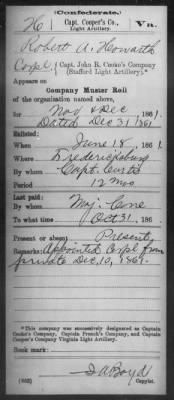 (Confederate.)
H | Capt. Cooper's Co., Light Artillery. | Va.
Robert A. Howarth
Corpl, Capt. John R. Cooke's Company
(Stafford Light Artillery).*
Appears on
Company Muster Roll
of the organization named above,
for Nov & Dec 1861.
Dated Dec 31 1861
Enlisted:
When June 18 1861.
Where Fredericksburg
By whom Capt. Curtis
Period 12 mos
Last paid:
By whom Maj: Cone
To what time Oct 31, 186
Present or absent Present,
Remarks: Appointed Corpl from
private Dec, 10, 1861.
*This company was successively designated as Captain
Cooke's Company, Captain French's Company, and Captain
Cooper's Company Virginia Light Artillery.
Book mark:
J A Boyd
(642) Copyist.